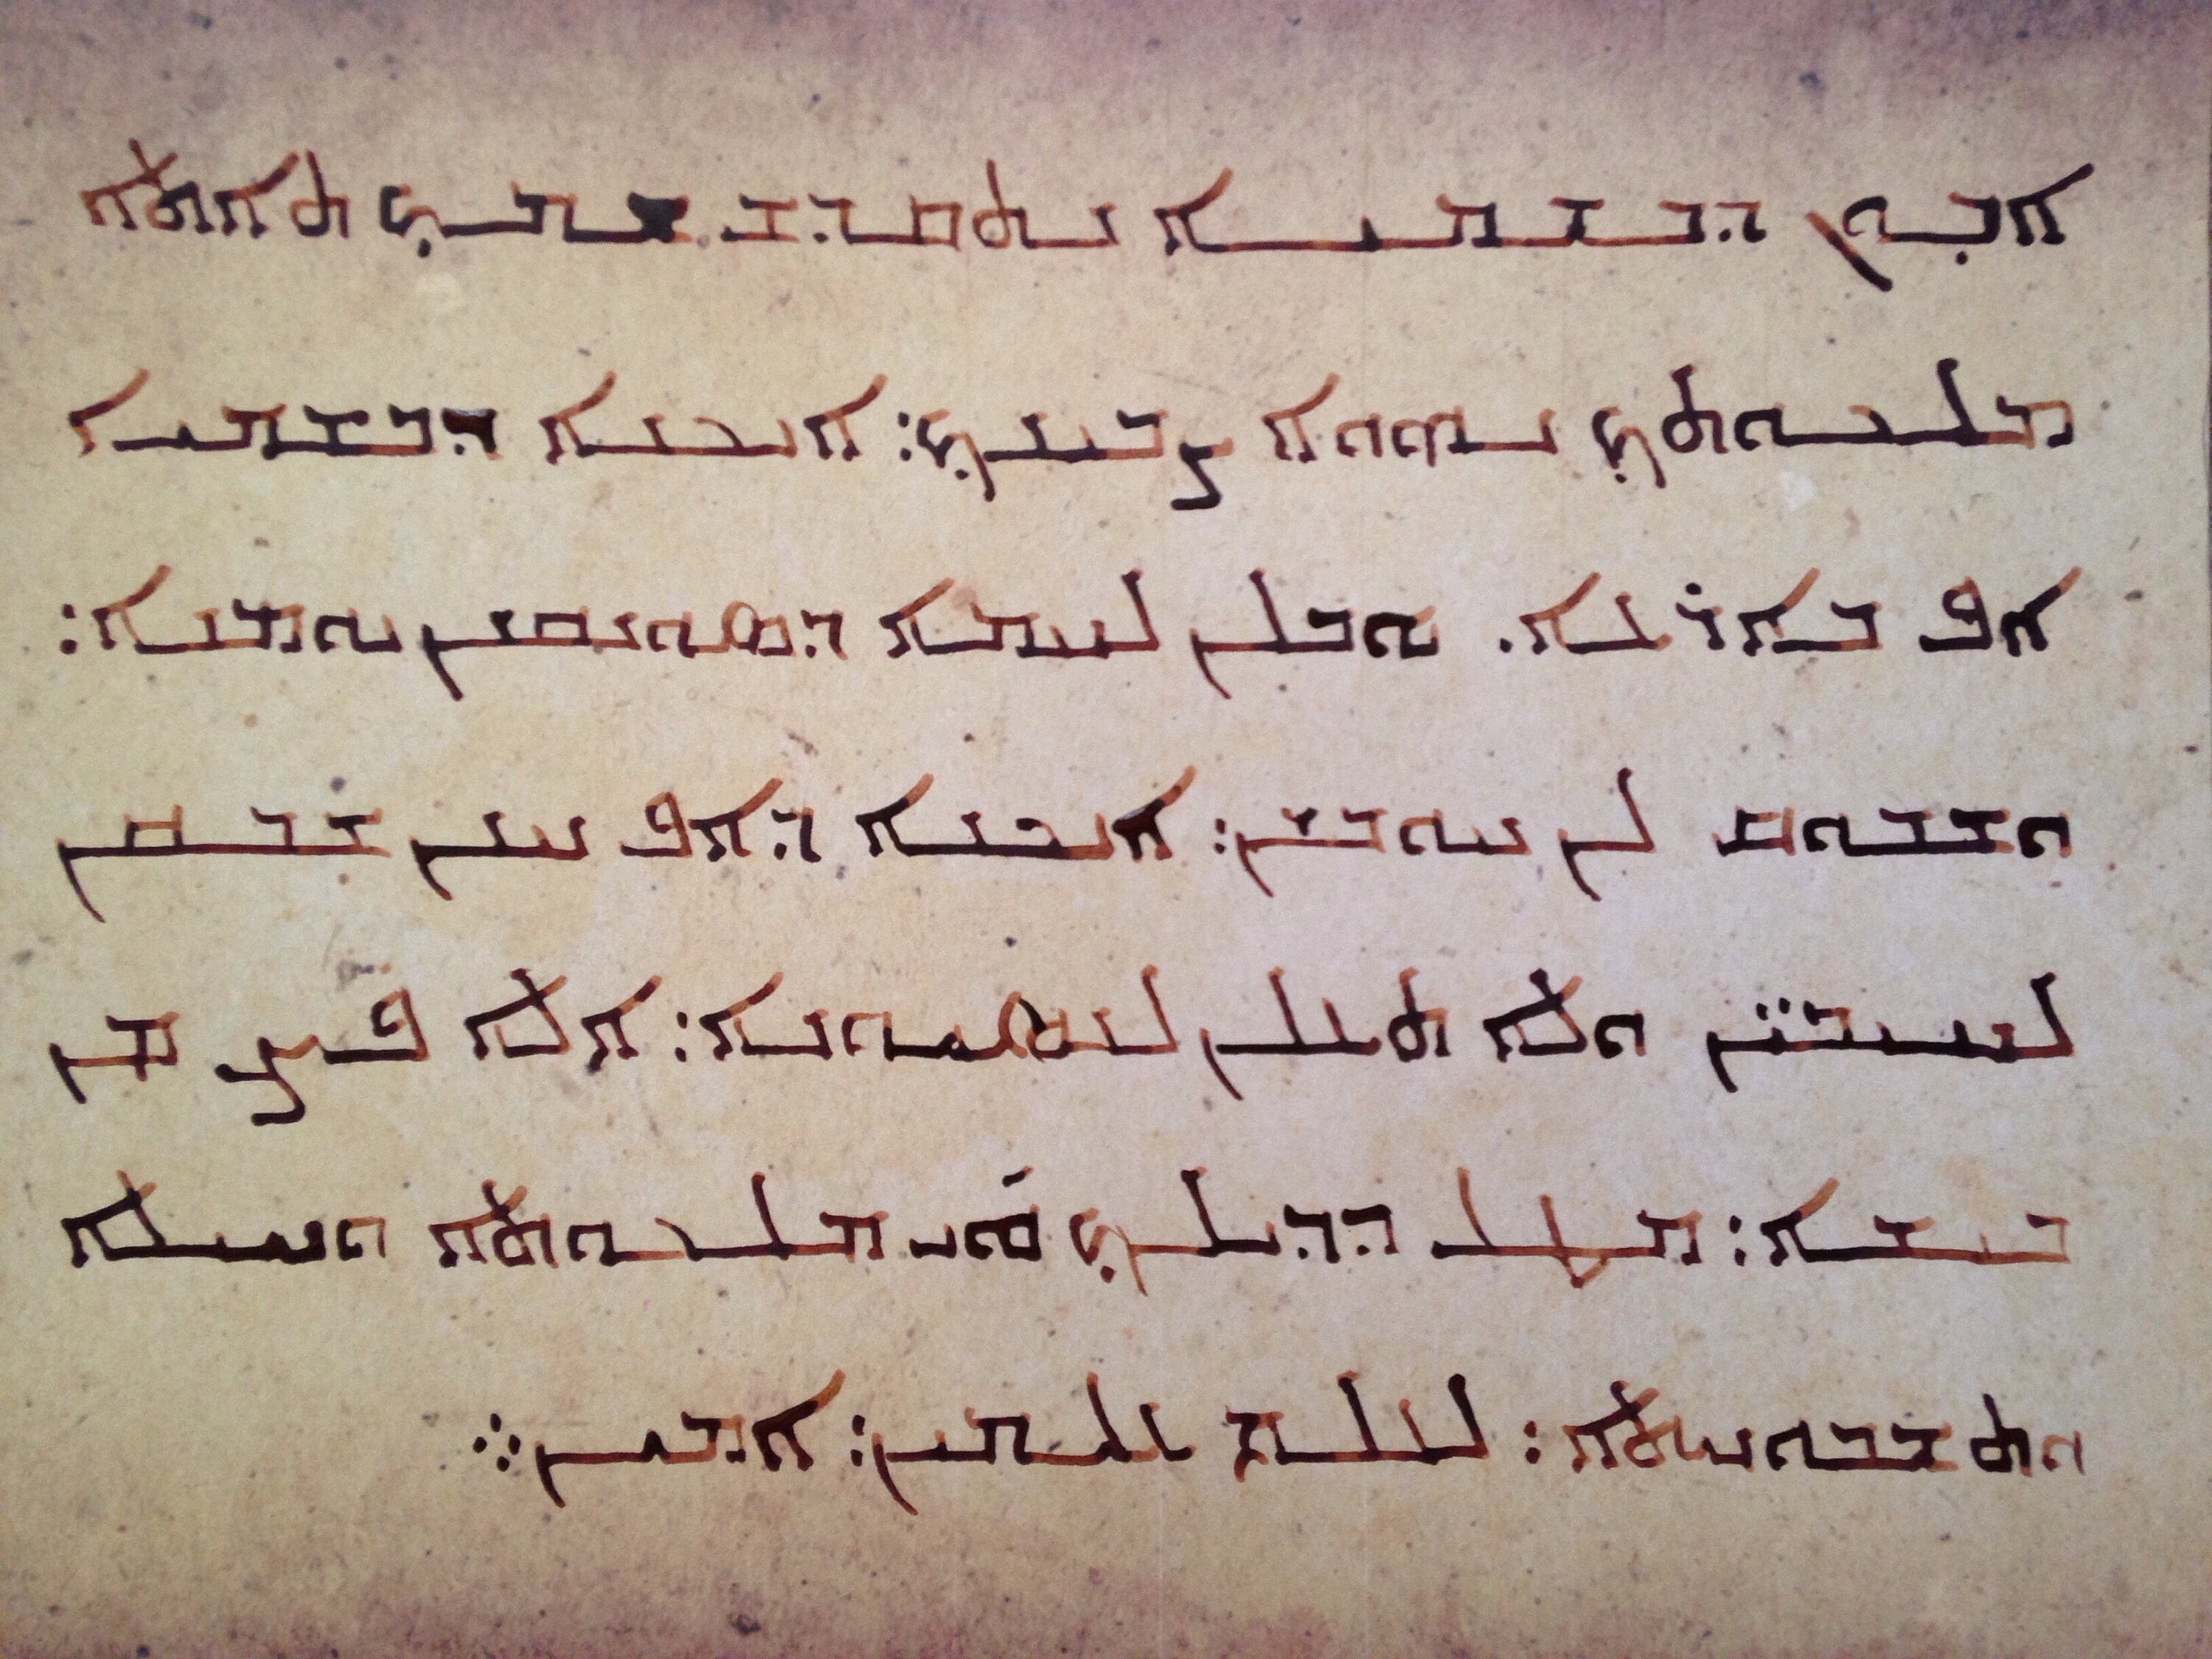 ܐܒܘܢ ܕܒܫܡܝܐ ܢܬܩܕܫ ܫܡܟ ܬܐܬܐ
ܡܠܟܘܬܟ ܢܗܘܐ ܨܒܝܢܟ: ܐܝܟܢܐ ܕܒܫܡܝܐ
ܐܦ ܒܐܪܥܐ. ܗܒܠܢ ܠܚܡܐ ܕܣܘܢܩܢܢ ܝܘܡܢܐ:
ܘܫܒܘܩ ܠܢ ܚܘܒܝܢ: ܐܝܟܢܐ ܕܐܦ ܚܢܢ ܫܒܩܢ
ܠܚܝܒ̈ܝܢ ܘܠܐ ܬܥܠܢ ܠܢܣܝܘܢܐ: ܐܠܐ ܦܨܢ ܡܢ
ܒܝܫܐ: ܡܛܠ ܕܕܝܠܟ ܗܝ ܡܠܟܘܬܐ ܘܚܝܠܐ
ܘܬܫܒܘܚܬܐ: ܠܥܠܡ ܥܠܡܝܢ: ܐܡܝܢ܀